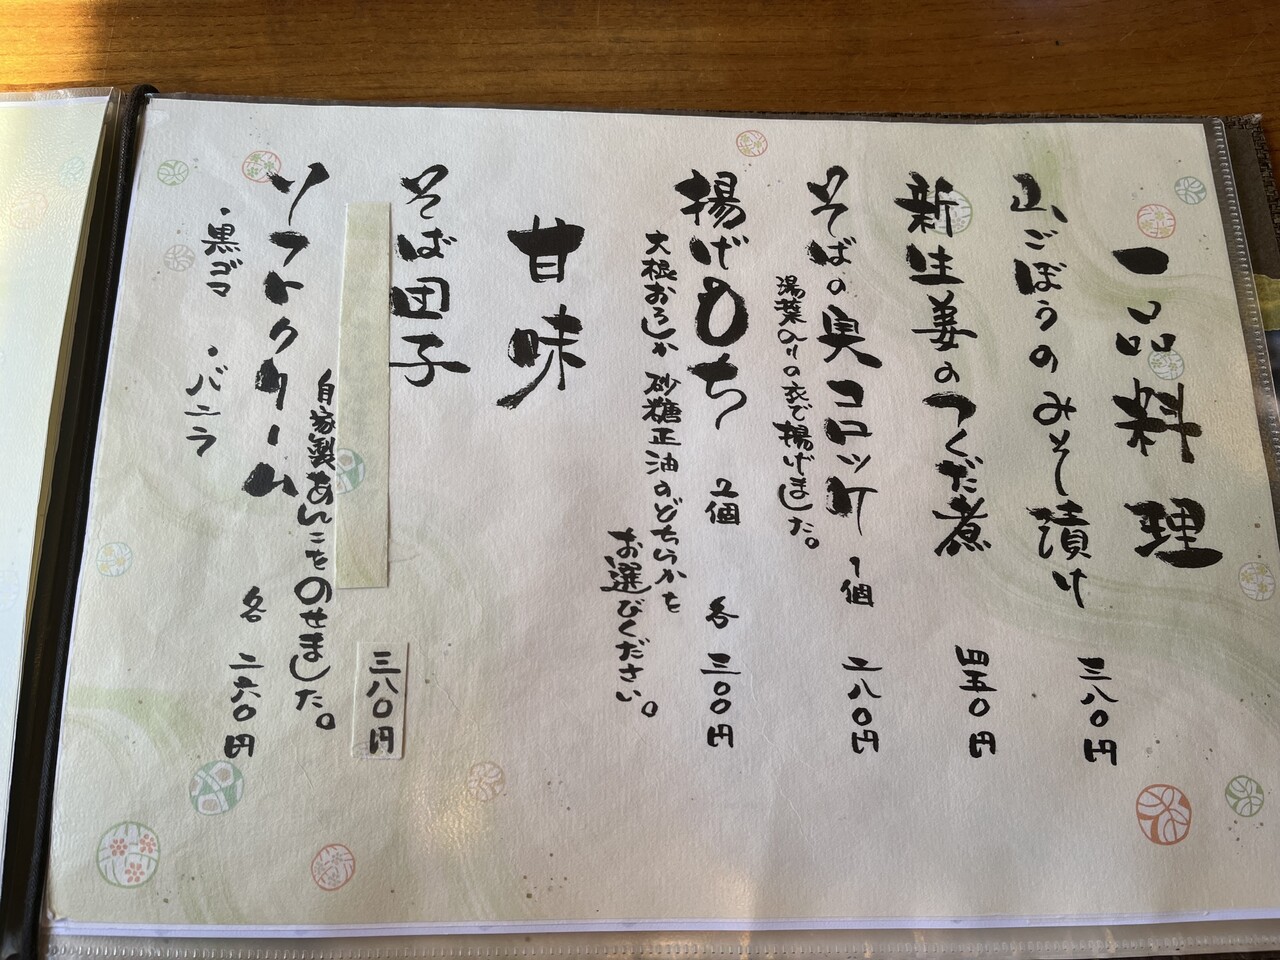 一品料理
山ごぼうのみそ漬け 三八〇円
新生姜のつくだ煮 四五〇円
そばの実コロッケ 1個 二八〇円
湯葉入りの衣で揚げました。
揚げもち 2個 各 三〇〇円
大根おろしか 砂糖正油のどちらかを
お選びください。
甘味
そば団子 三八〇円
自家製あんこをのせました。
ソフトクリーム 各 二六〇円
・黒ゴマ ・バニラ